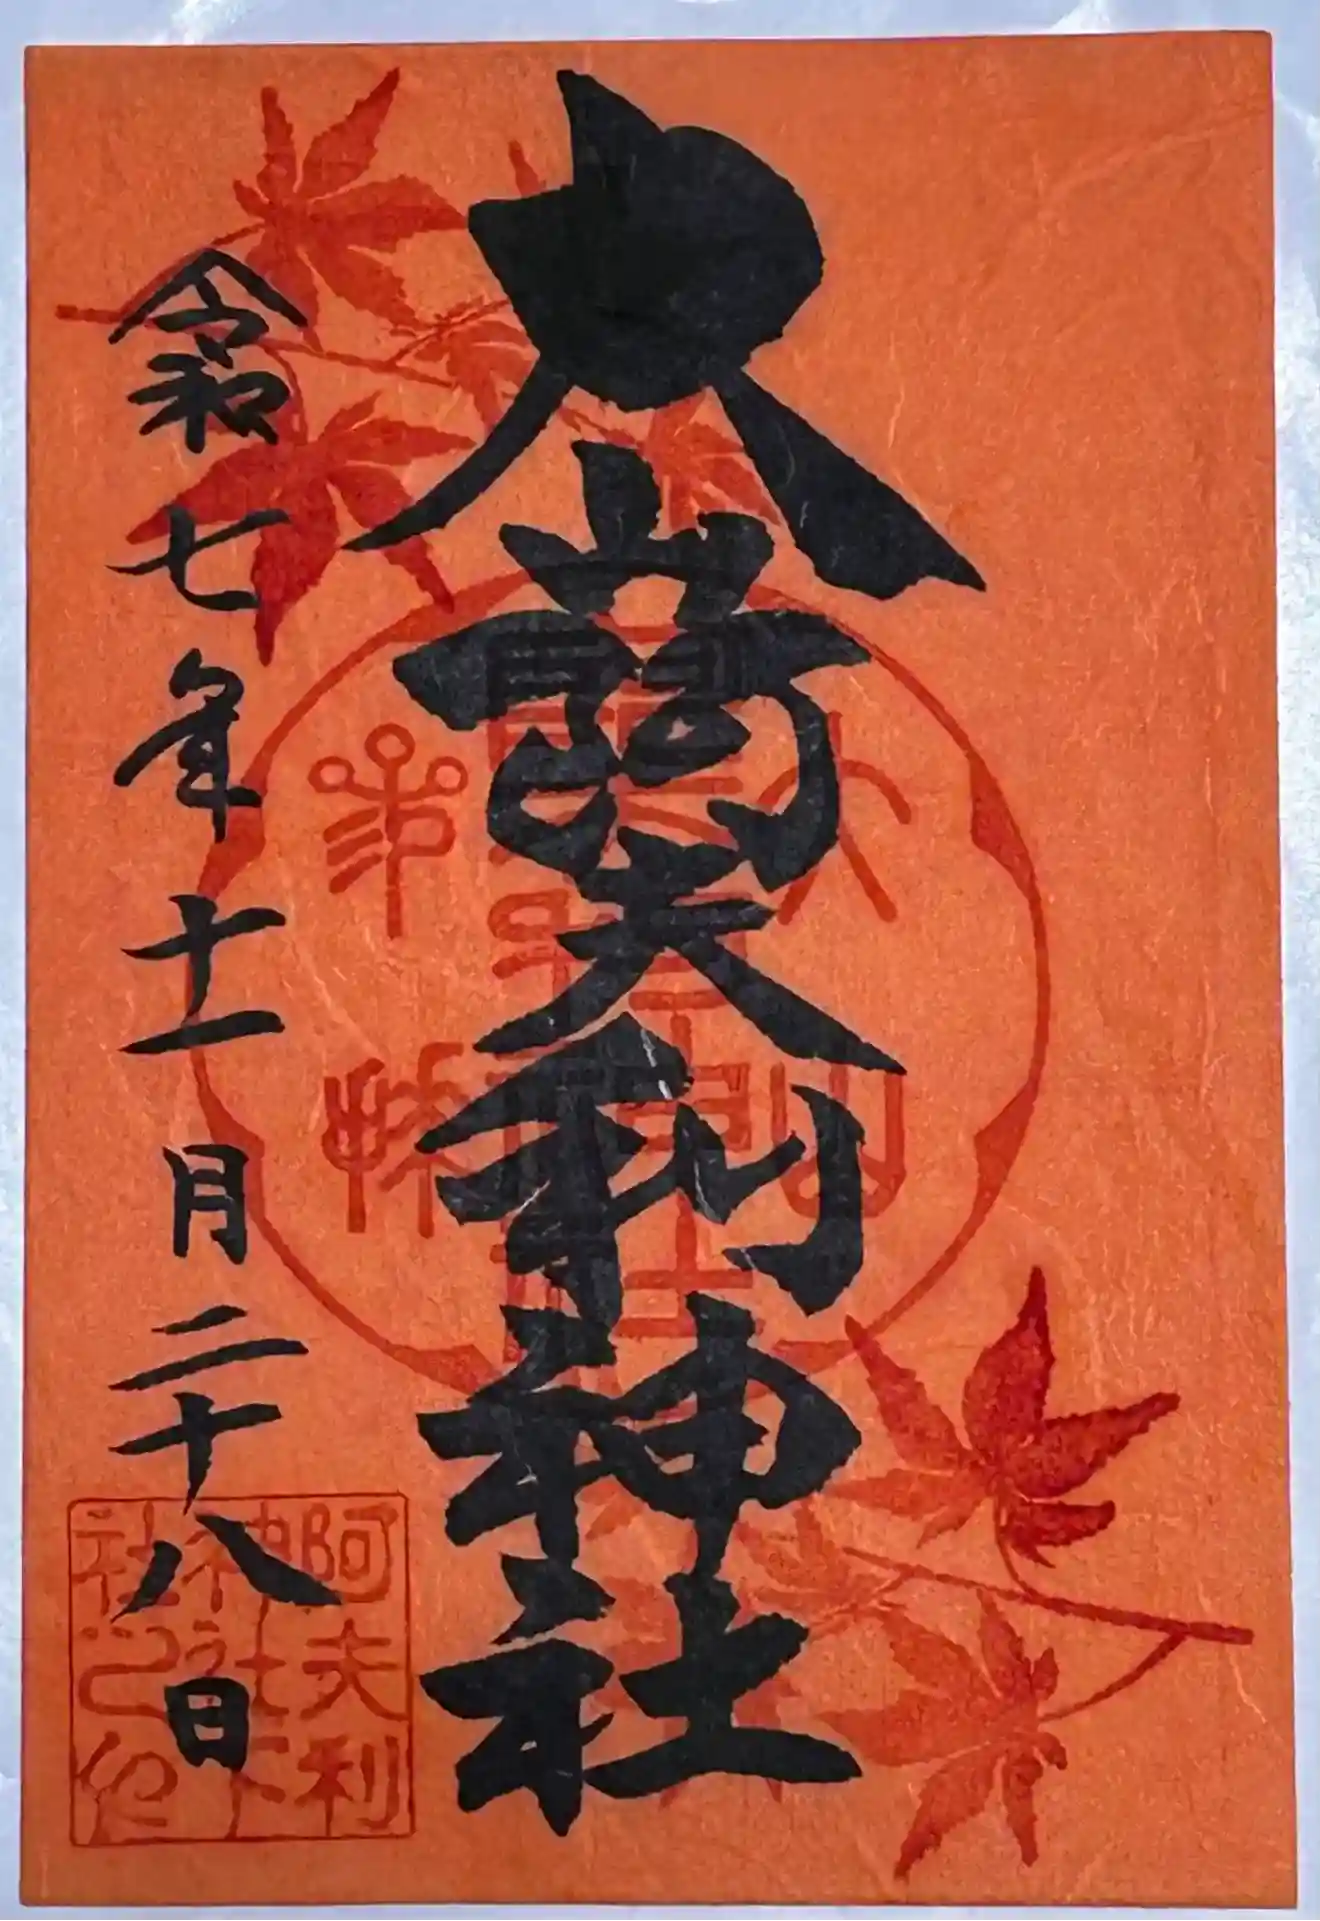 大山阿夫利神社
令和七年十一月二十八日
大山
阿夫利
神社下
社之印